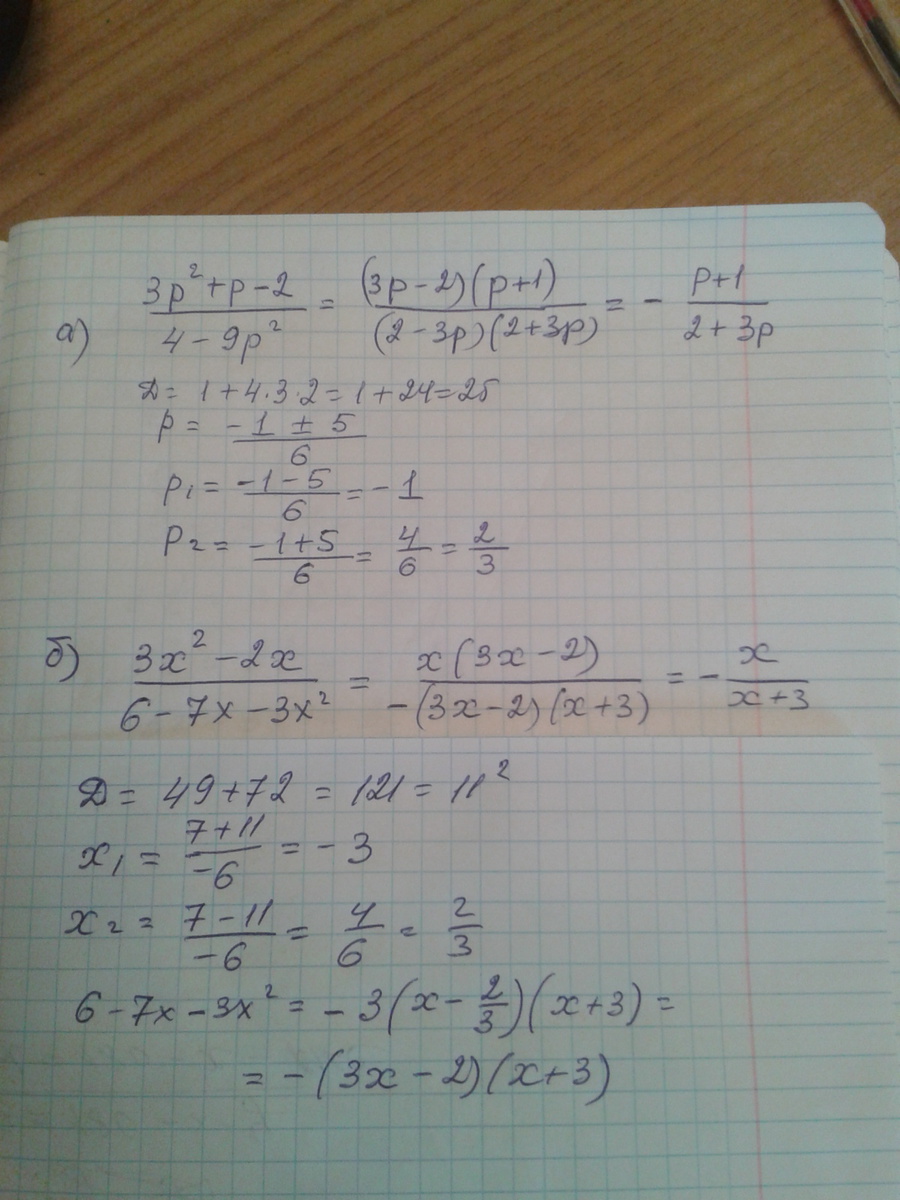 а) (3p² + p − 2)/(4 − 9p²) = ((3p − 2)(p + 1))/((2 − 3p)(2 + 3p)) = − (p + 1)/(2 + 3p)
D = 1 + 4·3·2 = 1 + 24 = 25
p = (−1 ± 5)/6
p₁ = (−1 − 5)/6 = −1
p₂ = (−1 + 5)/6 = 4/6 = 2/3
б) (3x² − 2x)/(6 − 7x − 3x²) = (x(3x − 2))/(−(3x − 2)(x + 3)) = − x/(x + 3)
D = 49 + 72 = 121 = 11²
x₁ = (7 + 11)/(−6) = −3
x₂ = (7 − 11)/(−6) = 4/6 = 2/3
6 − 7x − 3x² = −3(x − 2/3)(x + 3) =
= −(3x − 2)(x + 3)